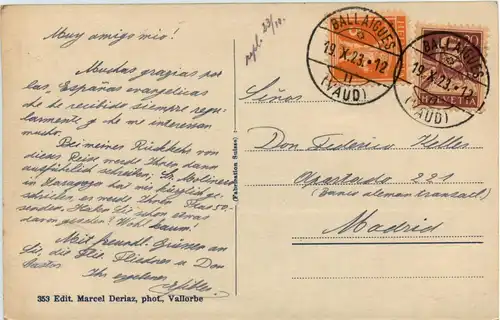 Muy amigo mio!
Muchas gracias por
las "Españas evangélicas
que he recibido siempre regu-
larmente y que me interesan
mucho.
Bei meiner Rückkehr von
dieser Reise werde Ihnen dann
ausführlich schreiben; Sr. Molinero
in Zaragoza hat mir kürzlich ge-
schrieben, er werde Ihnen
senden. Haben Sie schon etwas
davon gesehen? Wohl kaum!
Mit freundl. Grüssen an
Sie, die Flia. Fliedner u. Don
Ihr ergebener
353 Edit. Marcel Deriaz, phot., Vallorbe
(Fabrication Suisse)
BALLAIGUES
19.X.23.-12
(VAUD)
BALLAIGUES
19.X.23.-12
(VAUD)
HELVETIA
Señor
Don Federico Heller
Apartado 221
(Banco aleman transatl.)
Madrid